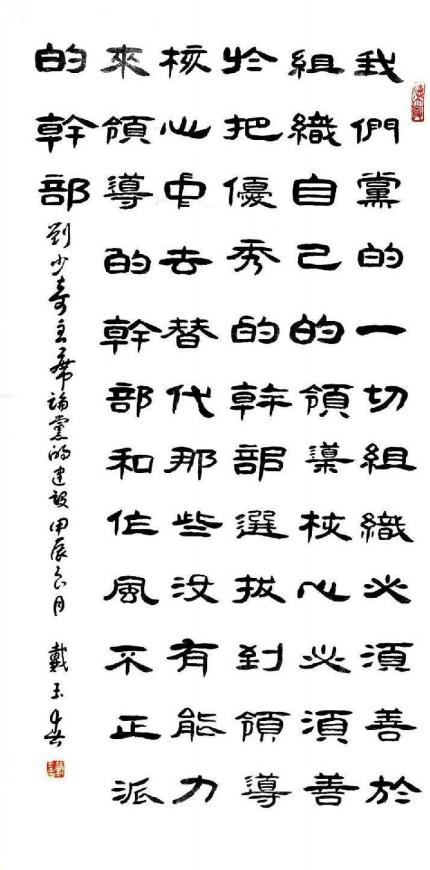 我們黨的一切組織必須善於
組織自己的領導核心必須善
於把優秀的幹部選拔到領導
核心中去替代那些没有能力
來領導的幹部和作風不正派
的幹部
劉少奇主席論黨的建設甲辰月 戴玉